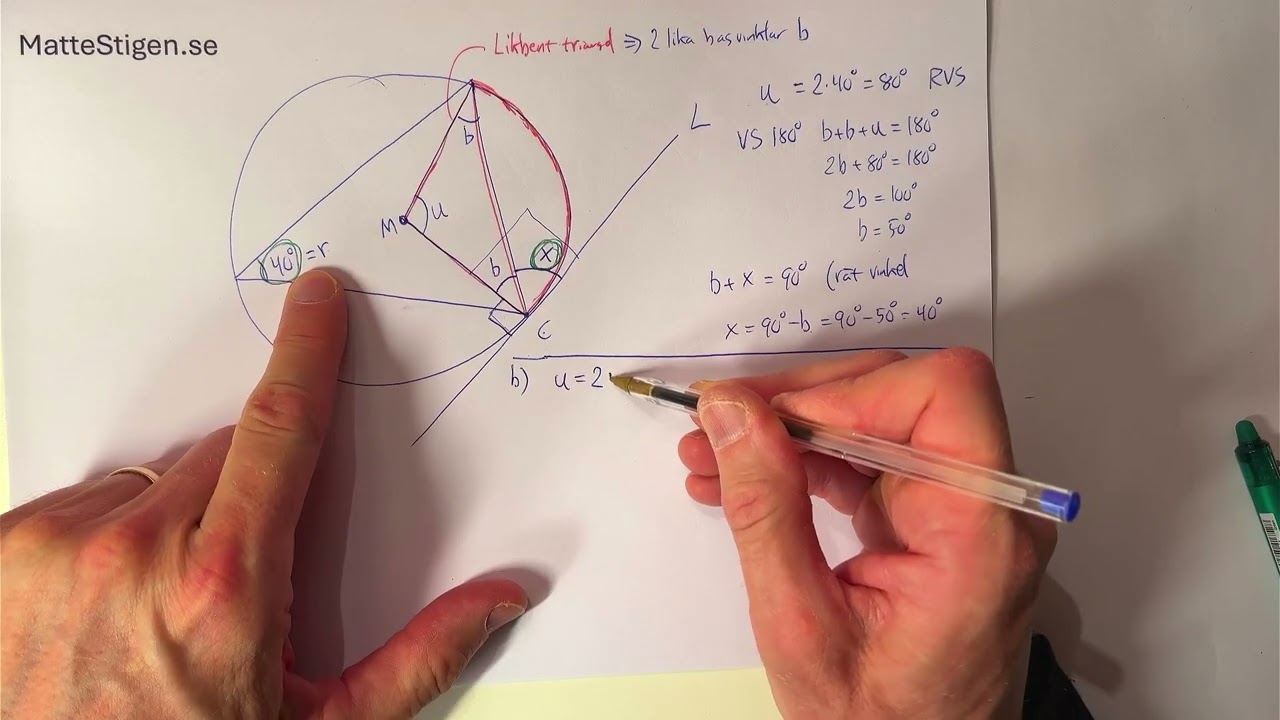 MatteStigen.se
Likbent triangel => 2 lika basvinklar b
u = 2·40° = 80° RVS
VS 180° b+b+u = 180°
2b + 80° = 180°
2b = 100°
b = 50°
b + x = 90° (rät vinkel
x = 90° - b = 90° - 50° = 40°
L
b
M
u
40° = r
b
x
C
b) u = 2